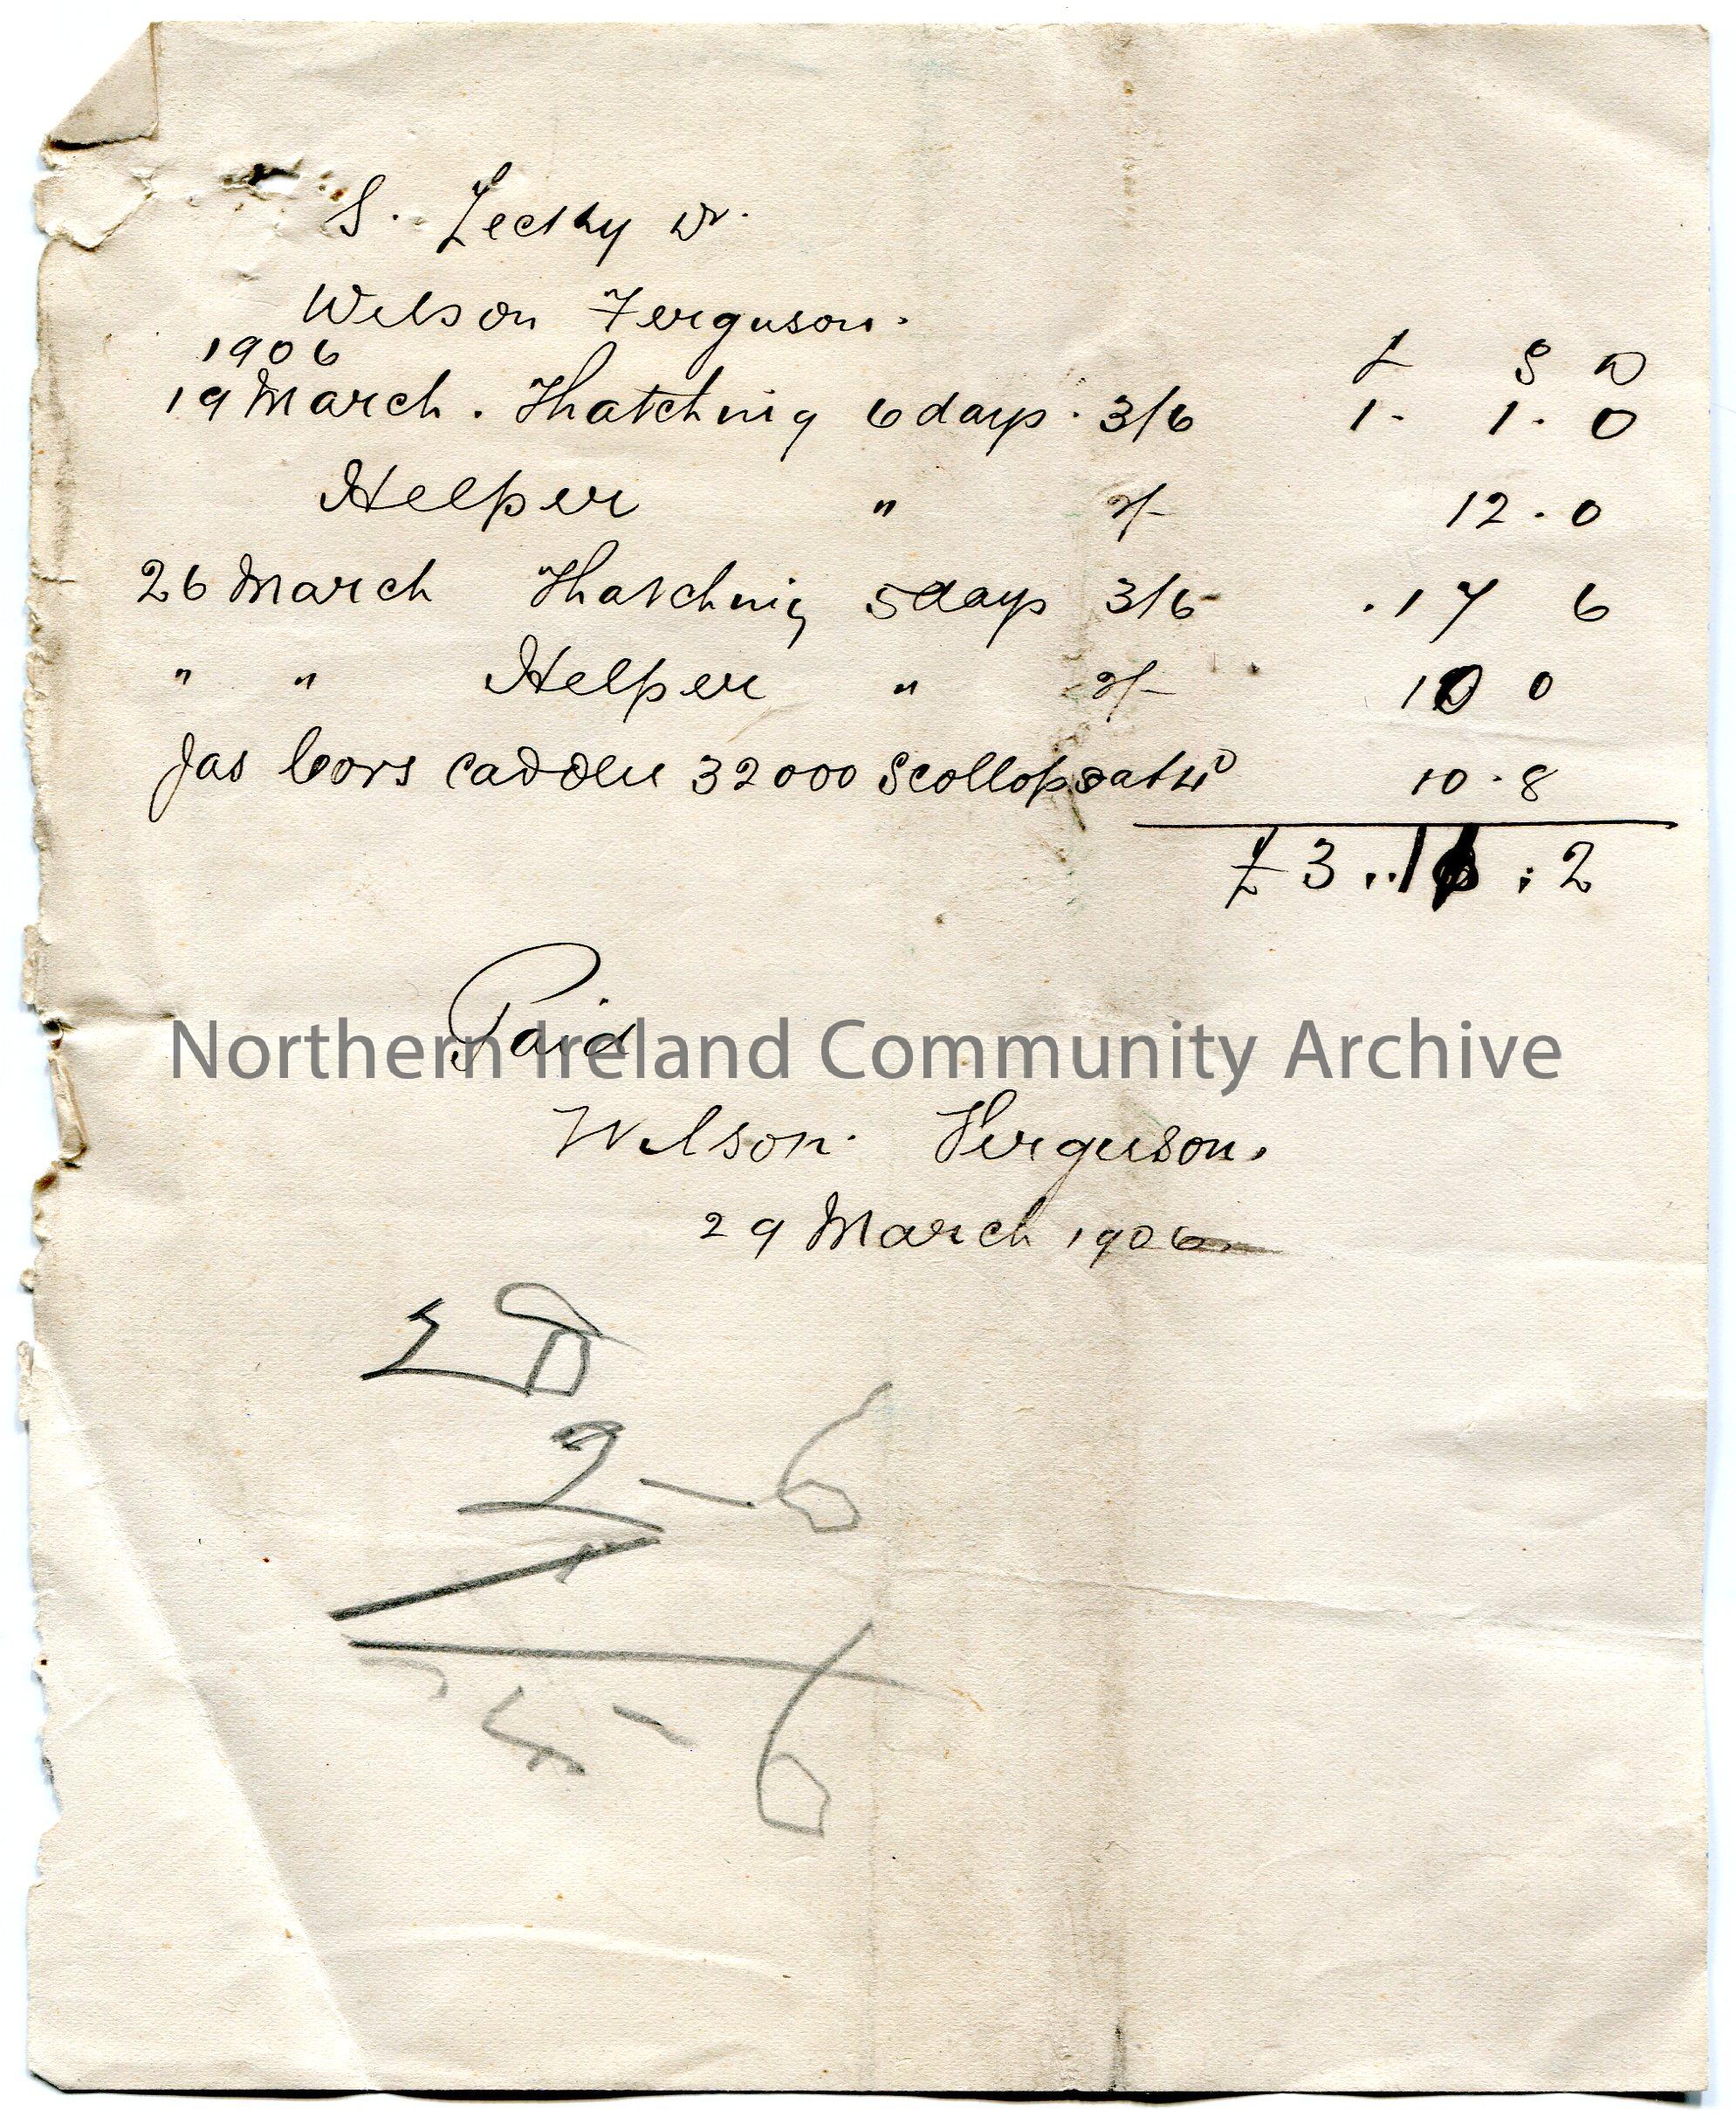 S. Lecky Dr.
Wilson Ferguson.
1906
£ S D
19 March. Thatching 6 days. 3/6 1- 1. 0
Helper " 2/- 12. 0
26 March Thatching 5 days 3/6 .17 6
" " Helper " 2/- 10 0
Jas 32000 Scollops at 4D 10.8
£3..11:2
Paid
Northern Ireland Community Archive
Wilson Ferguson.
29 March 1906
2-6